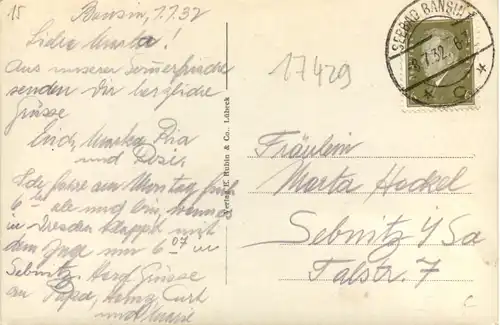 15
Bansin, 7.7.32
Liebe Marta!
Aus unserer Sommerfrische
senden Dir herzliche
Grüsse
Erich, Martha, Pia
und Resi.
Ich fahre am Montag früh
6
in Dresden klappt mit
dem Zuge um 6 07 in
Sebnitz. Herzl Grüsse
an Papa, Heinz, Curt
und
Verlag E. Rubin & Co., Lübeck
17429
SEEBAD BANSIN
8.7.32.
Fräulein
Marta Hockel
Sebnitz i/Sa
Talstr. 7